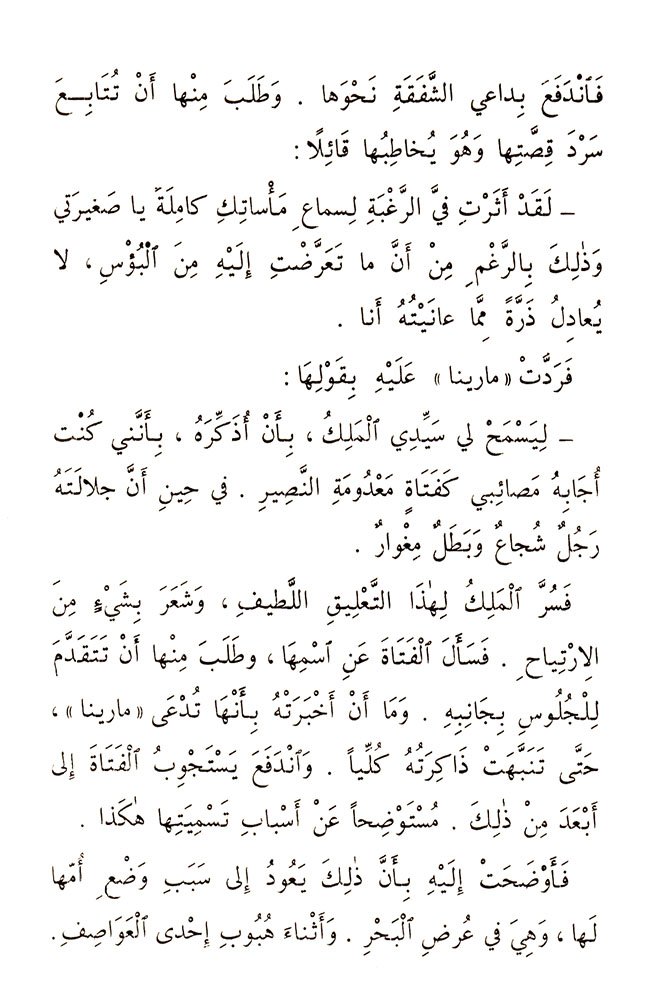 فَٱنْدَفَعَ بِداعي الشَّفَقَةِ نَحْوَها . وَطَلَبَ مِنْها أَنْ تُتَابِـعَ
سَرْدَ قِصَّتِها وَهُوَ يُخاطِبُها قَائِلًا :
– لَقَدْ أَثَرْتِ فيَّ الرَّغْبَةِ لِسماعِ مَأْساتِكِ كامِلَةً يا صَغيرَتي
وَذٰلِكَ بِالرَّغْمِ مِنْ أَنَّ ما تَعَرَّضْتِ إِلَيْهِ مِنَ ٱلْبُؤْسِ ، لا
يُعادِلُ ذَرَّةً مِمَّا عانَيْتُهُ أَنا .
فَرَدَّتْ « مارينا » عَلَيْهِ بِقَوْلِهَا :
– لِيَسْمَحْ لي سَيِّدِي ٱلْمَلِكُ ، بِأَنْ أُذَكِّرَهُ ، بِأَنَّني كُنْت
أُجَابِهُ مَصائِبي كَفَتَاةٍ مَعْدُومَةِ النَّصِيرِ . في حِينِ أَنَّ جلالَتَهُ
رَجُلٌ شُجاعٌ وَبَطَلٌ مِغْوارٌ .
فَسُرَّ ٱلْمَلِكُ لِهٰذَا التَّعْلِيقِ اللَّطيفِ ، وَشَعَرَ بِشَيْءٍ مِنَ
الِارْتِياحِ . فَسَأَلَ ٱلْفَتَاةَ عَنِ ٱسْمِهَا ، وطَلَبَ مِنْها أَنْ تَتَقَدَّمَ
لِلْجُلُوسِ بِجَانِبِهِ . وَمَا أَنْ أَخْبَرَتْهُ بِأَنْهَا تُدْعَى « مارينا » ،
حَتَّى تَنَبَّهَتْ ذَاكِرَتُهُ كُلِّياً . وَٱنْدَفَعَ يَسْتَجْوِبُ ٱلْفَتَاةَ إِلى
أَبْعَدَ مِنْ ذٰلِكَ . مُسْتَوْضِحاً عَنْ أَسْبابِ تَسْمِيَتِها هٰكَذا .
فَأَوْضَحَتْ إِلَيْهِ بِأَنَّ ذٰلِكَ يَعُودُ إِلى سَبَبِ وَضْعِ أُمّها
لَها ، وَهِيَ في عُرضِ ٱلْبَحْرِ . وَأَثْناءَ هُبُوبِ إِحْدى ٱلْعَوَاصِفِ .